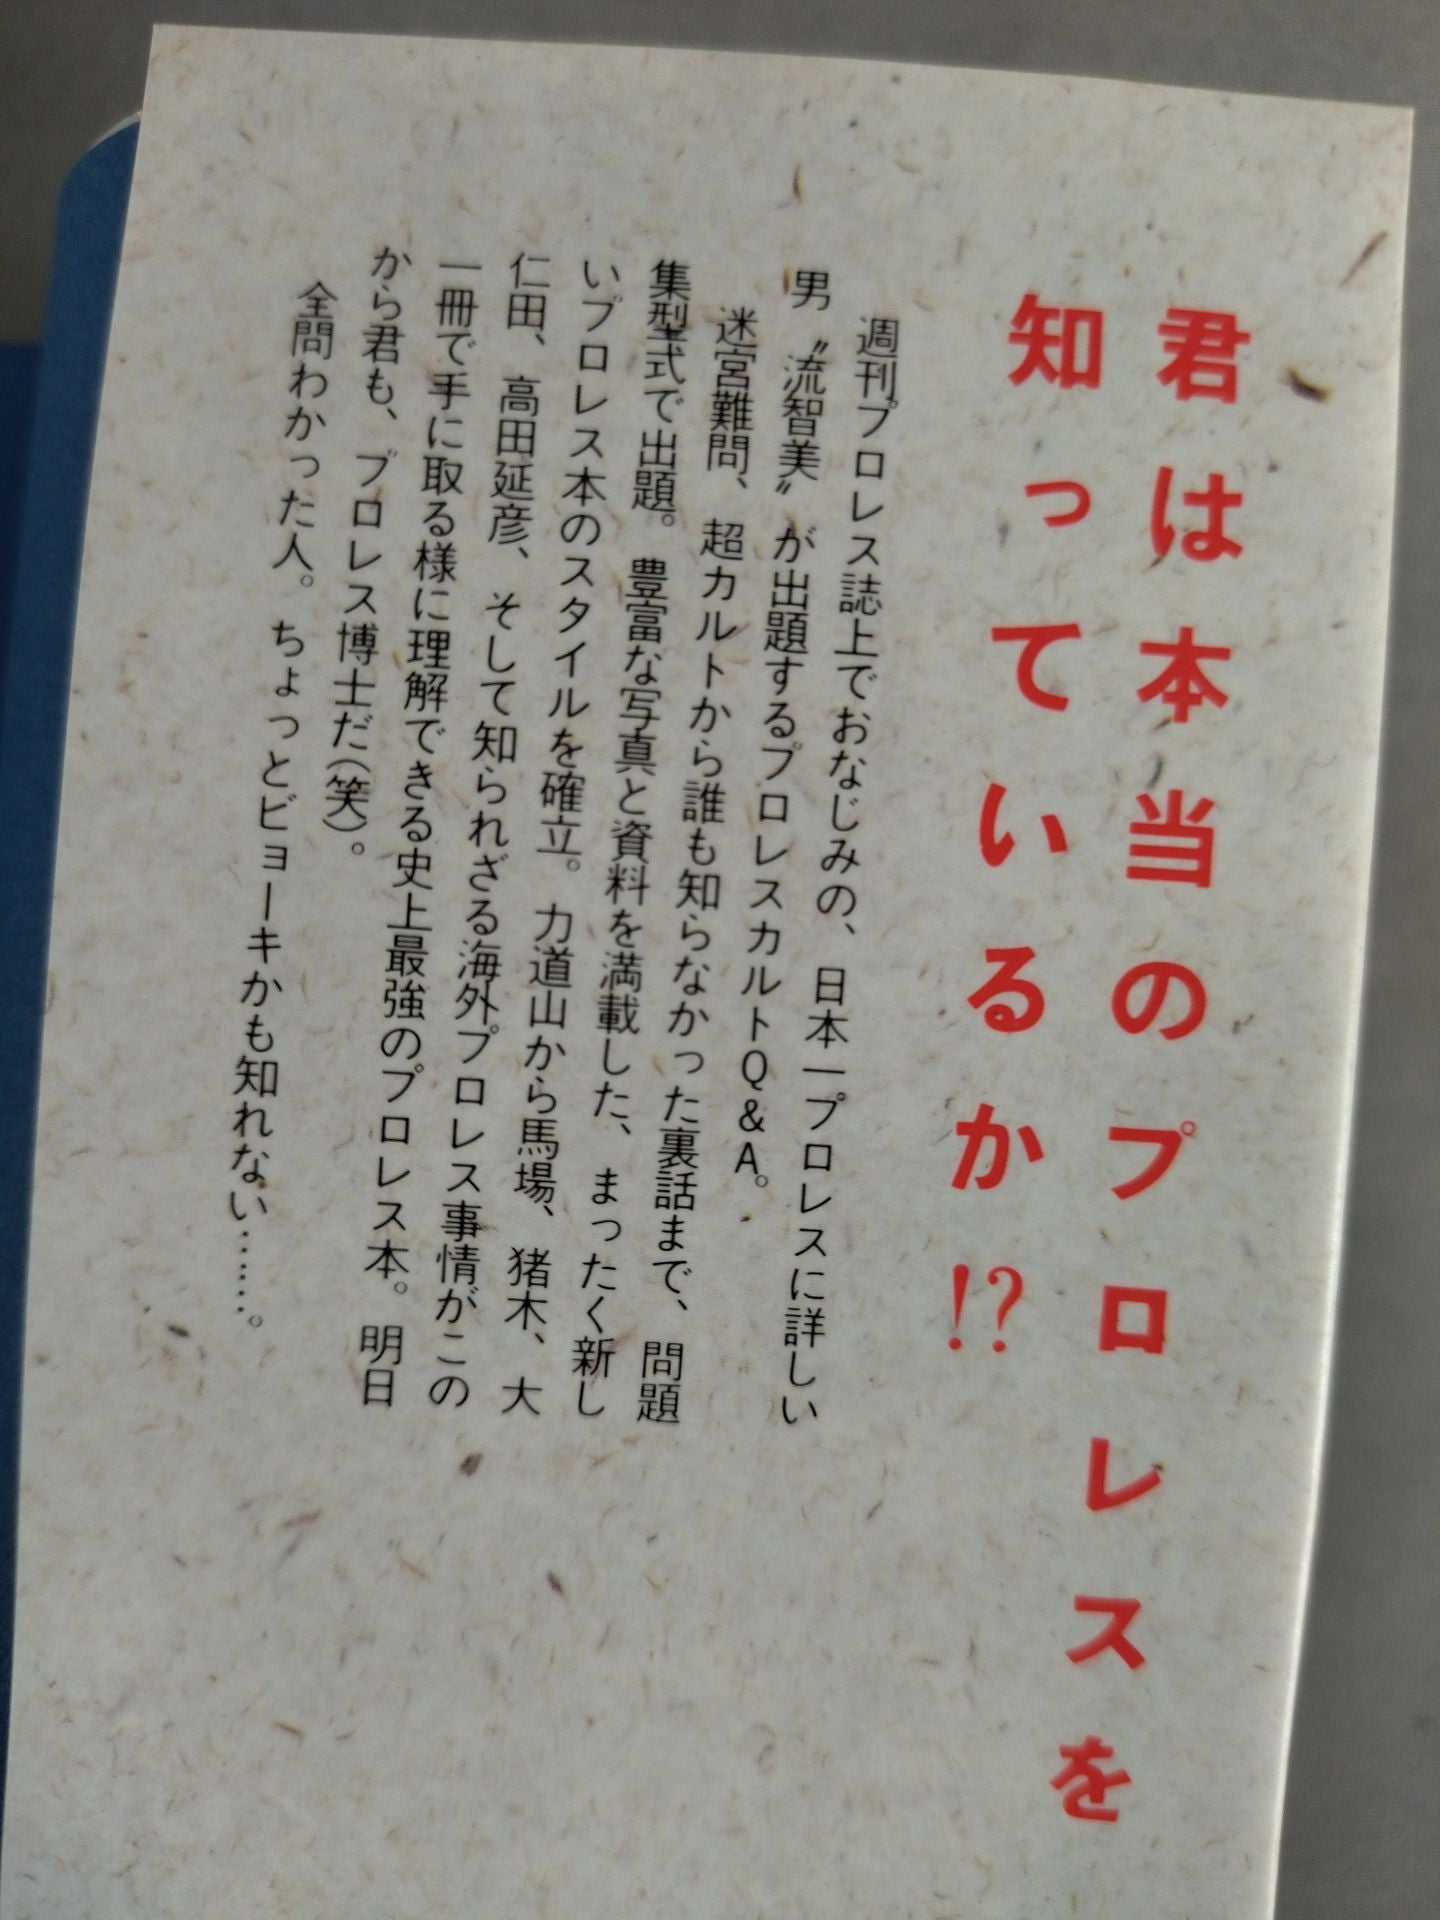 君は本当のプロレスを
知っているか!?
週刊プロレス誌上でおなじみの、日本一プロレスに詳しい
男〝流智美〟が出題するプロレスカルトQ&A。
迷宮難問、超カルトから誰も知らなかった裏話まで、問題
集型式で出題。豊富な写真と資料を満載した、まったく新し
いプロレス本のスタイルを確立。力道山から馬場、猪木、大
仁田、高田延彦、そして知られざる海外プロレス事情がこの
一冊で手に取る様に理解できる史上最強のプロレス本。明日
から君も、プロレス博士だ(笑)。
全問わかった人。ちょっとビョーキかも知れない……。